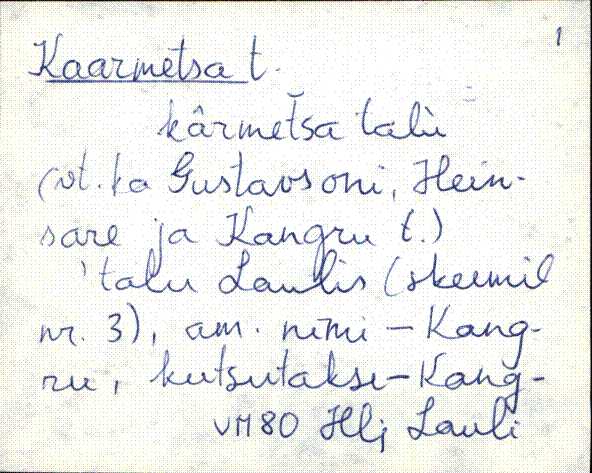 1
Kaarmetsa t.
kârmet̆sa talù
(vt. ka Gustavsoni, Hein-
sare ja Kangru t.)
'talu Laulis (skeemil
nr. 3), am. nimi – Kang-
ru, kutsutakse – Kang-
VM80 Hlj Lauli